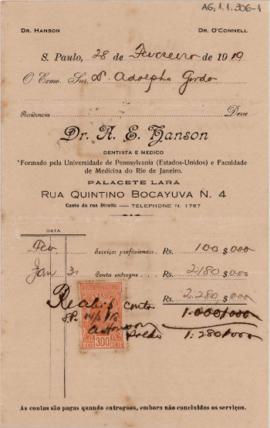 AG.1.1.306-1
DR. HANSON DR. O'CONNELL
S. Paulo, 28 de Fevereiro de 1919
O Exmo. Snr. D. Adolpho Gordo
Residencia Deve
Dr. A. E. Hanson
DENTISTA E MEDICO
Formado pela Universidade de Pennsylvania (Estados-Unidos) e Faculdade
de Medicina do Rio de Janeiro.
PALACETE LARA
RUA QUINTINO BOCAYUVA N. 4
Canto da rua Direita — TELEPHONE N. 1767
DATA
Fev. Serviços profissionaes Rs. 100$000
Jan 31 Conta entregue Rs. 2.180$000
Rs. 2.280$000
Recebi conto 1.000$000
S.P.
AEHanson 1:280$000
300
As contas são pagas quando entregues, embora não concluidos os serviços.